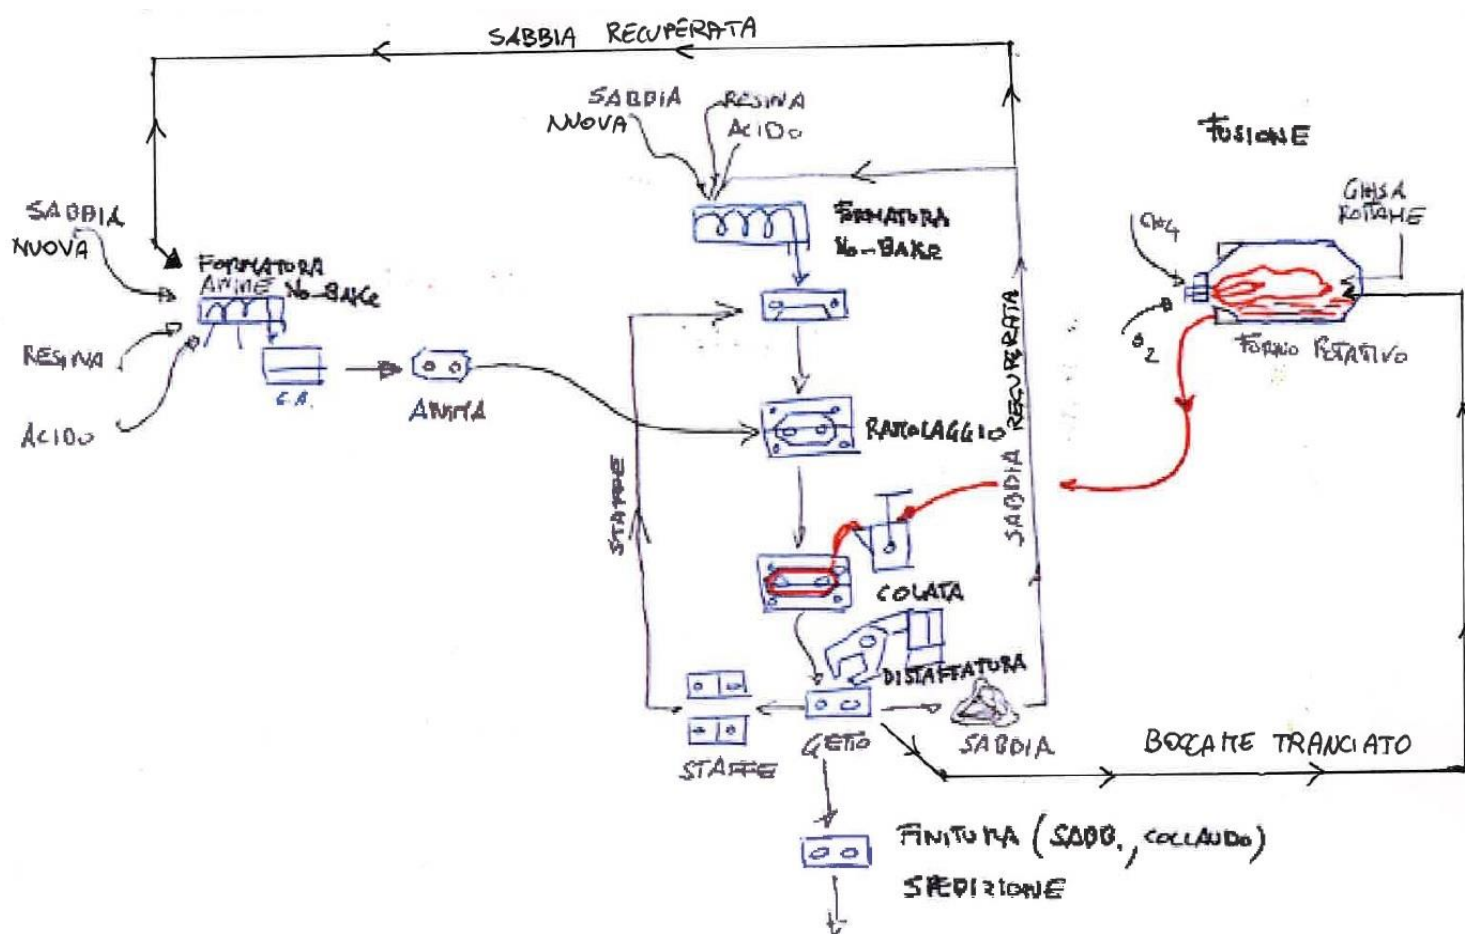 SABBIA RECUPERATA
SABBIA
NUOVA
RESINA
ACIDO
FUSIONE
GHISA
ROTTAME
CH4
O2
FORNO ROTATIVO
SABBIA
NUOVA
FORMATURA
ANIME NO-BAKE
FORMATURA
NO-BAKE
RESINA
ACIDO
C.A.
ANIMA
RAMOLAGGIO
SABBIA RECUPERATA
STAFFE
COLATA
DISTAFFATURA
STAFFE
GETTO
SABBIA
BOCCAME TRANCIATO
FINITURA (SABB., COLLAUDO)
SPEDIZIONE